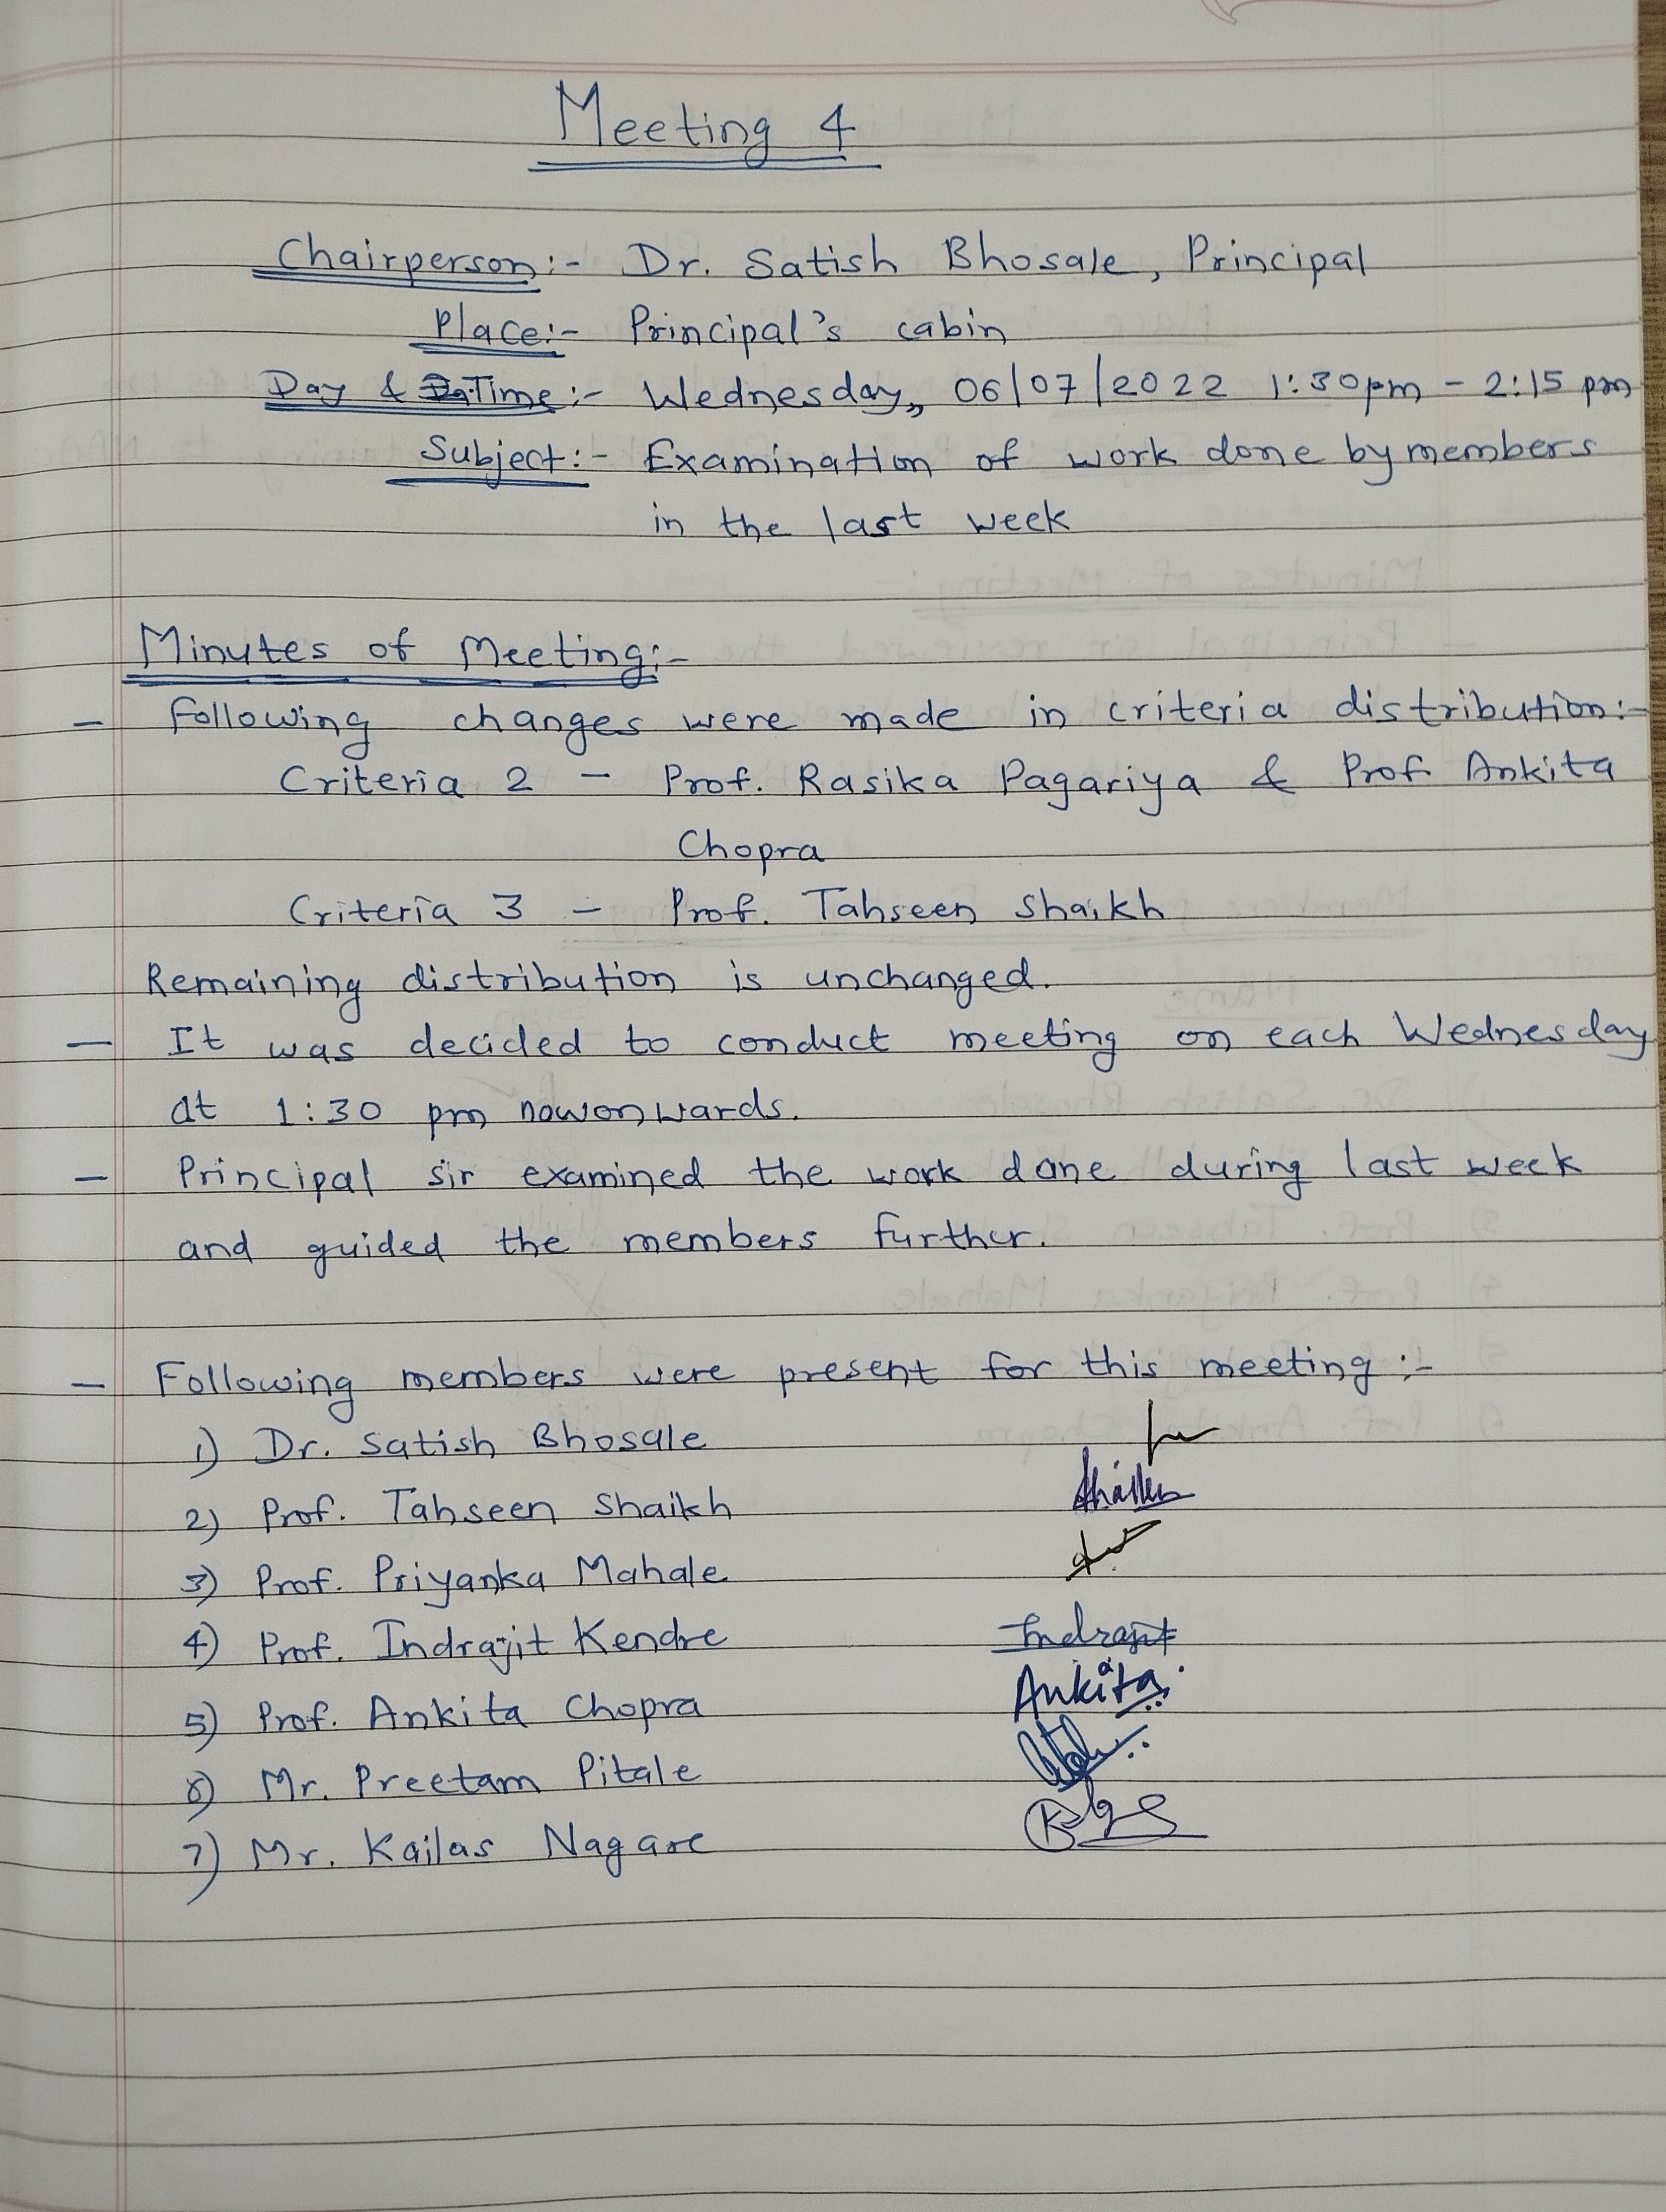 Meeting 4
Chairperson:- Dr. Satish Bhosale, Principal
Place:- Principal's cabin
Day & Time:- Wednesday, 06/07/2022 1:30pm - 2:15 pm
Subject:- Examination of work done by members
in the last week
Minutes of Meeting:-
- Following changes were made in criteria distribution:-
Criteria 2 - Prof. Rasika Pagariya & Prof Ankita
Chopra
Criteria 3 - Prof. Tahseen Shaikh
Remaining distribution is unchanged.
- It was decided to conduct meeting on each Wednesday
at 1:30 pm nowonwards.
- Principal sir examined the work done during last week
and guided the members further.
- Following members were present for this meeting :-
1) Dr. Satish Bhosale
2) Prof. Tahseen Shaikh
3) Prof. Priyanka Mahale
4) Prof. Indrajit Kendre Indrajit
5) Prof. Ankita Chopra Ankita
6) Mr. Preetam Pitale
7) Mr. Kailas Nagare